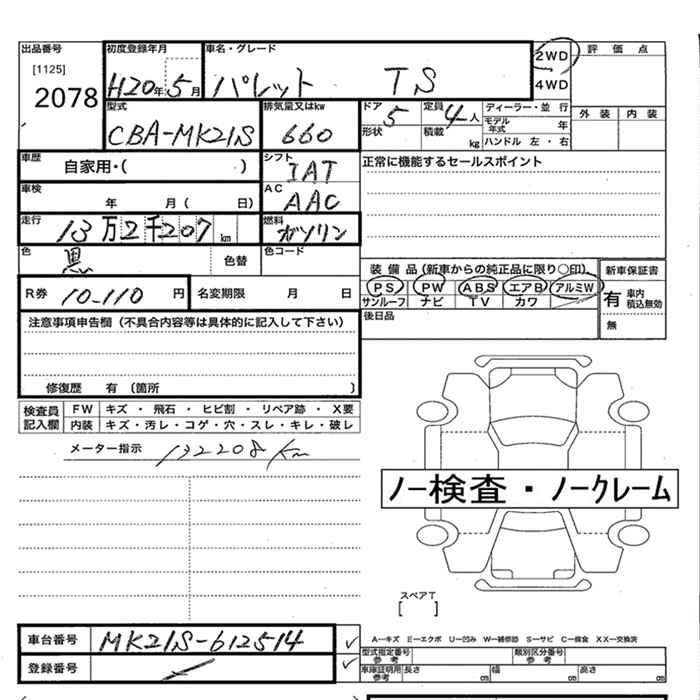 出品番号 初度登録年月 車名・グレード 2WD 評価点
[1125]
2078 H20年5月 パレット TS 4WD
型式 排気量又はkw ドア 定員 ディーラー・並行 外装 内装
CBA-MK21S 660 5 4人 モデル年式 年
形状 積載 kg ハンドル 左・右
車歴 自家用・( ) シフト IAT 正常に機能するセールスポイント
車検 年 月( 日) AC AAC
走行 13万2千207km 燃料 ガソリン
色 黒 色替 色コード
装備品(新車からの純正品に限り○印) 新車保証書
R券 10-110円 名変期限 月 日 PS PW ABS エアB アルミW 有 車内積込無効
サンルーフ ナビ TV カワ
注意事項申告欄(不具合内容等は具体的に記入して下さい) 後日品 無
修復歴 有(箇所 )
検査員記入欄 FW キズ・飛石・ヒビ割・リペア跡・X要
内装 キズ・汚レ・コゲ・穴・スレ・キレ・破レ
メーター指示 132208km
ノー検査・ノークレーム
スペアT
[ ]
車台番号 MK21S-612514 A－キズ E－エクボ U－凹み W－補修跡 S－サビ C－腐食 XX－交換済
型式指定番号 参考 類別区分番号 参考
登録番号 車庫証明用 参考 長さ cm 幅 cm 高さ cm